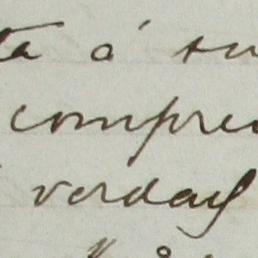 ta á su
compre
verdad